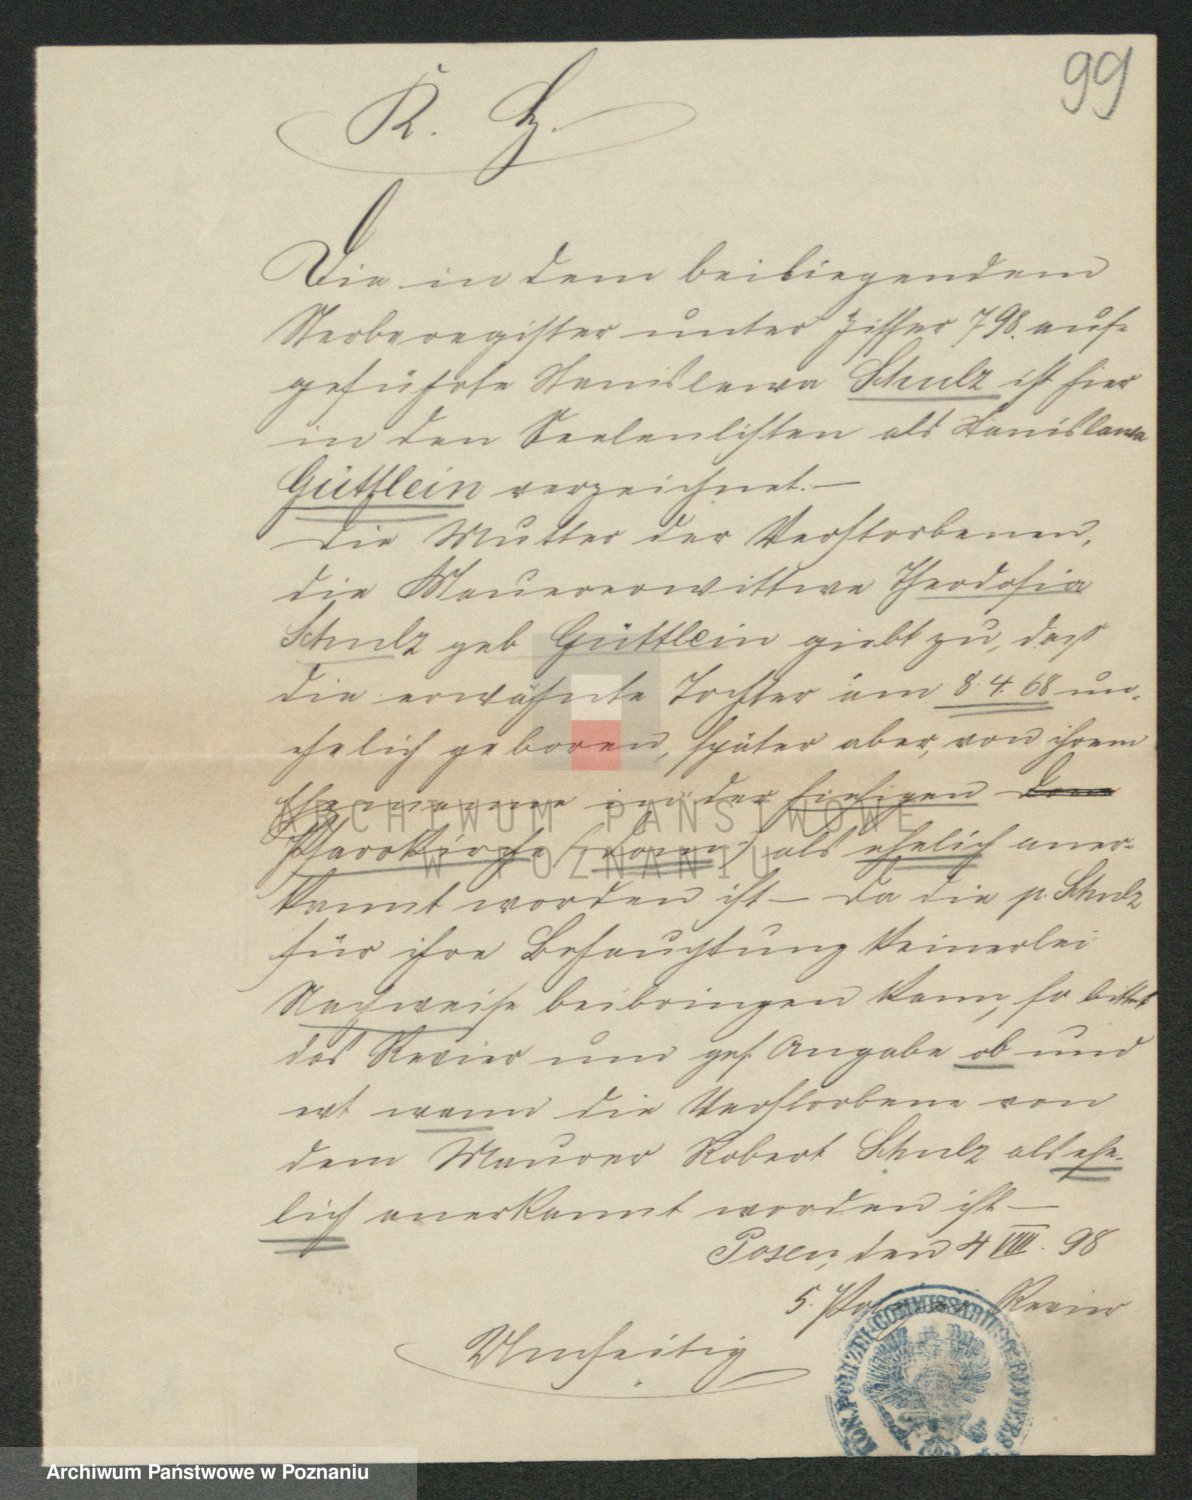 99
K. H.
Die in dem beiliegenden
Sterberegister unter Ziffer 798. auf-
geführte Stanislawa Schulz ist hier
in den Seelenlisten als Stanislawa
Güttlein verzeichnet. —
Die Mutter der Verstorbenen,
die Maurerwittwe Theodosia
Schulz geb Güttlein giebt zu, daß
die erwähnte Tochter am 8.4.68 un-
ehelich geboren, später aber, von ihrem
Ehemanne in der hiesigen Dom
Pfarrkirche als ehelich aner-
kannt worden ist — Da die p. Schulz
für ihre Behauptung keinerlei
Nachweise beibringen kann, so bittet
das Revier um gef. Angabe ob und
wann die Verstorbene von
dem Maurer Robert Schulz als ehe-
lich anerkannt worden ist —
Posen, den 4 VIII. 98
5. Pol. Revier
Umseitig
KÖN. POLIZEI-COMMISSARIUS REVIERS
ARCHIWUM PAŃSTWOWE
W POZNANIU
Archiwum Państwowe w Poznaniu